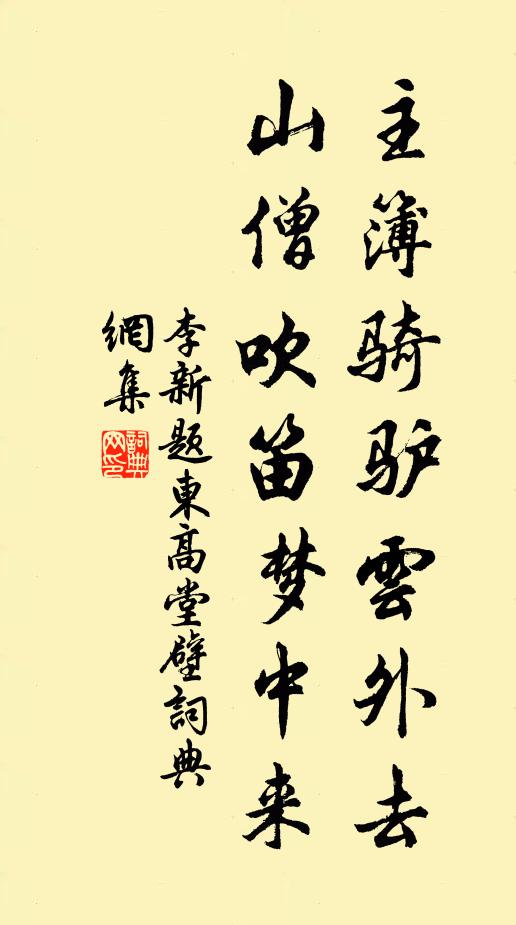 主簿骑驴雲外去
山僧吹笛梦中来
李新题東高堂壁詞典
網集
詞典网印